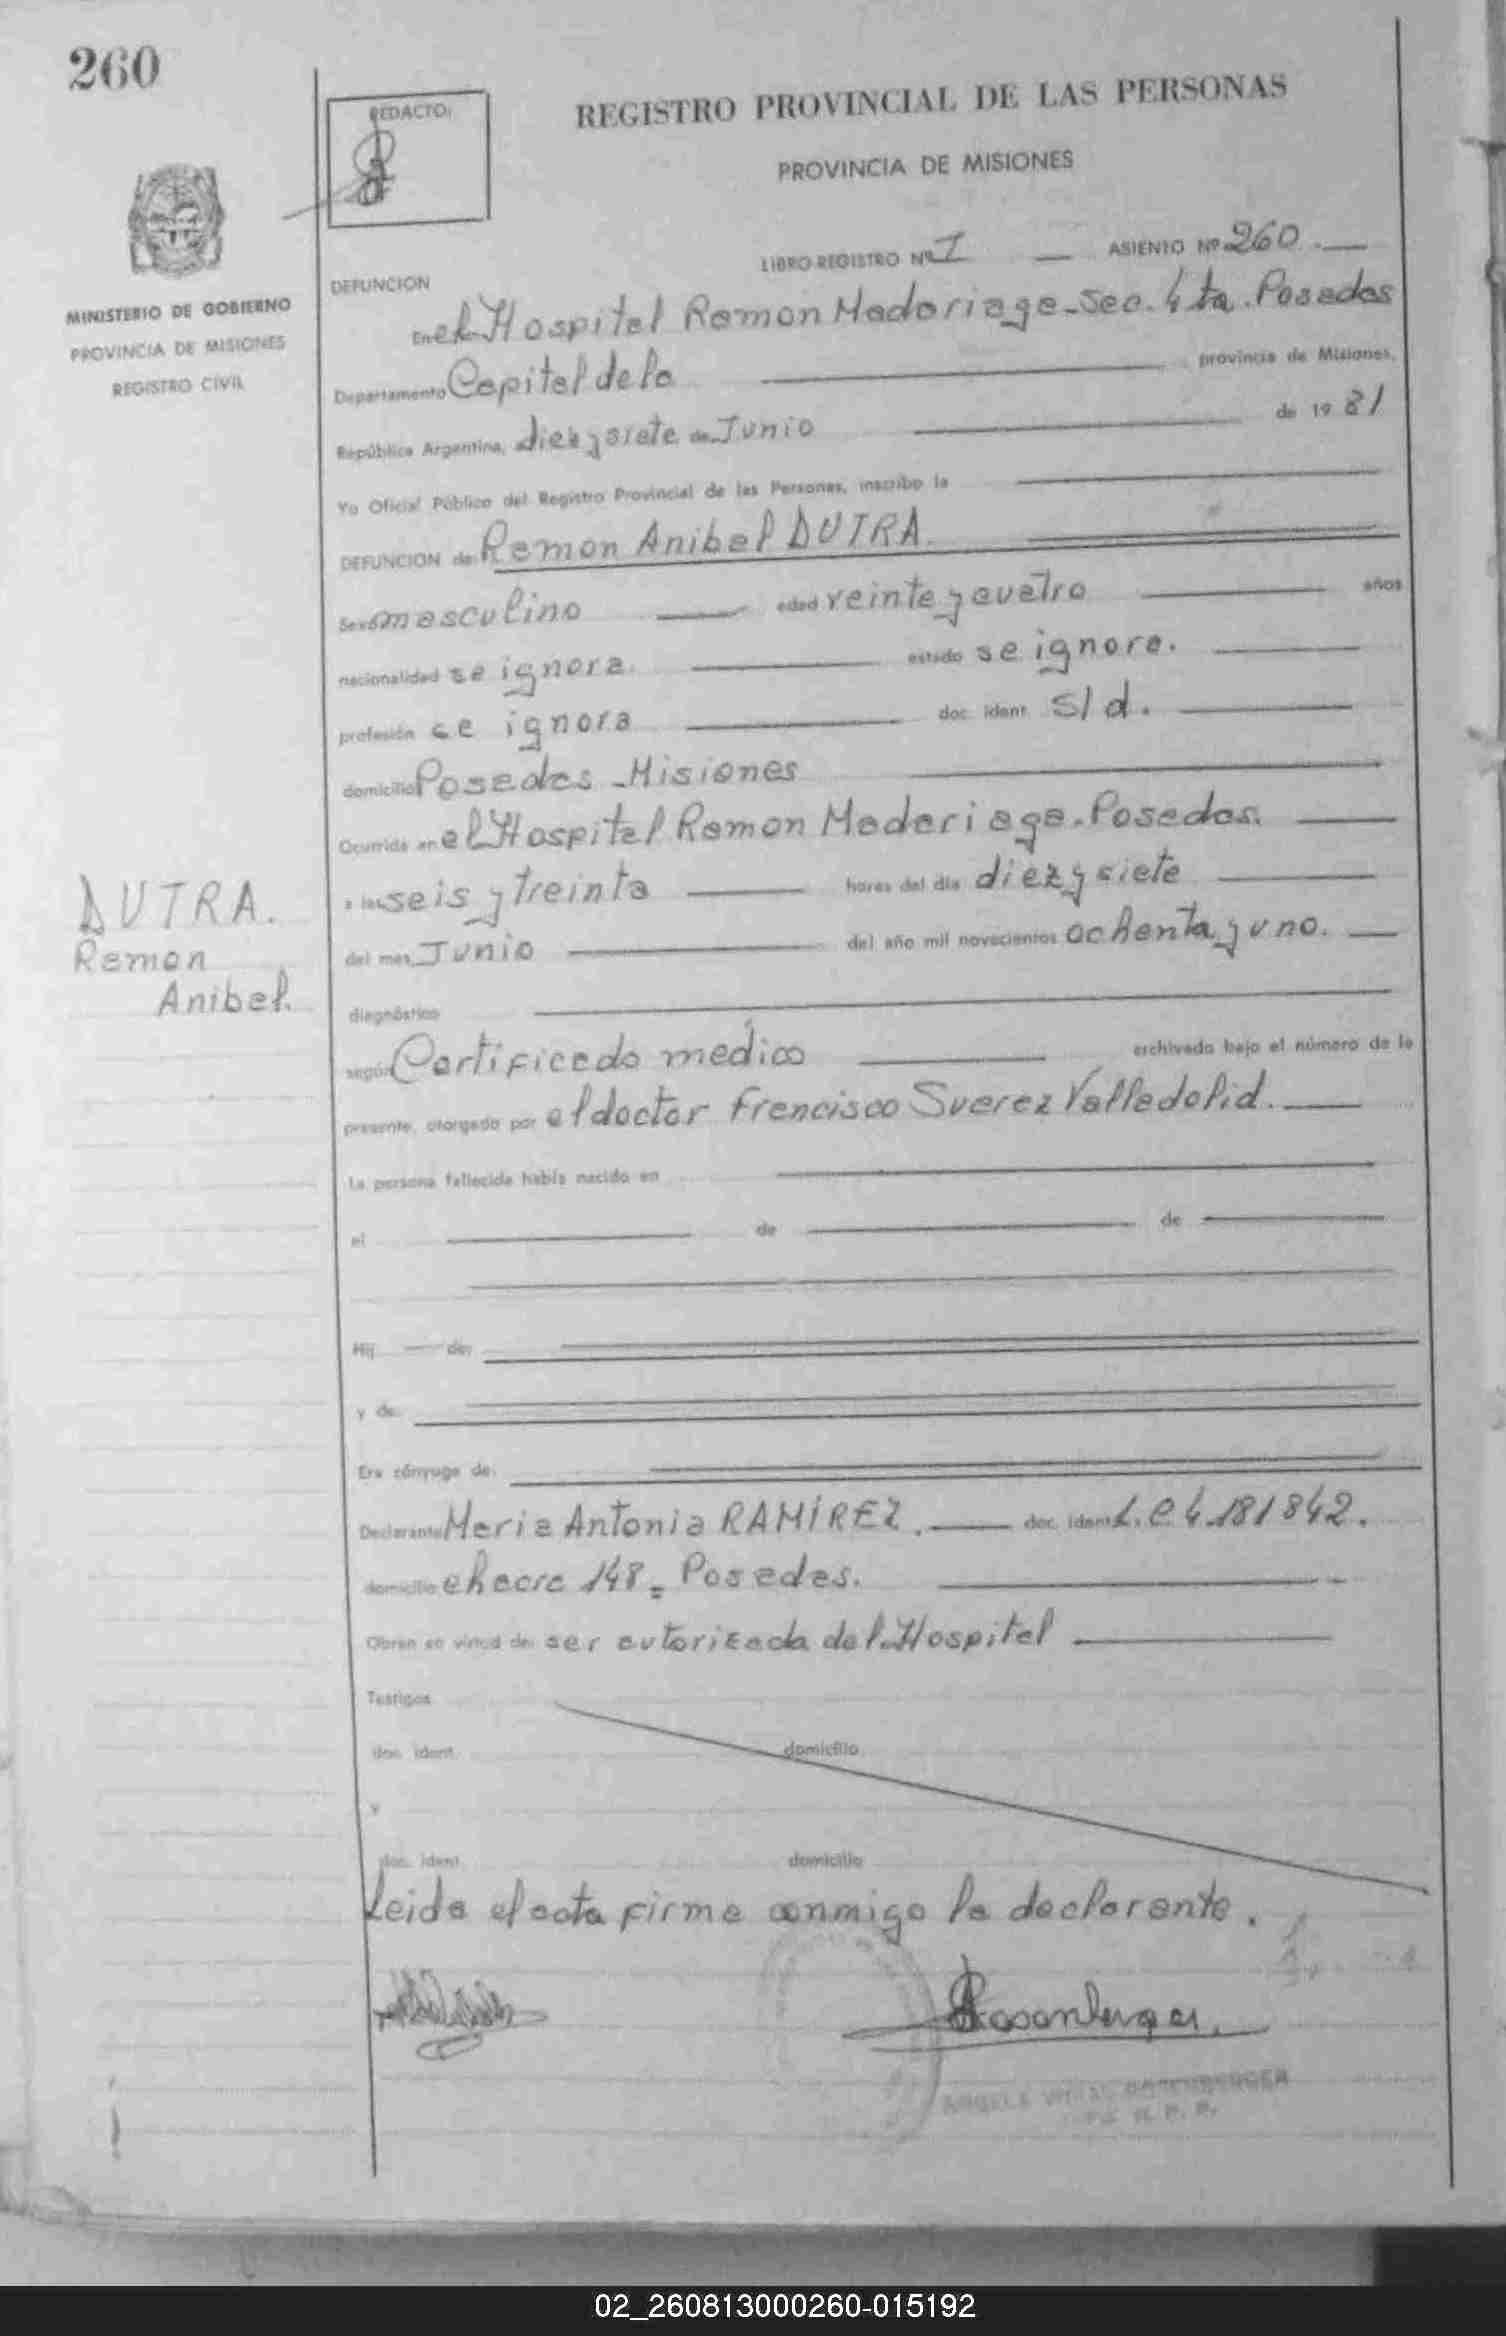 260
REDACTO:
REGISTRO PROVINCIAL DE LAS PERSONAS
PROVINCIA DE MISIONES
LIBRO-REGISTRO Nº I — ASIENTO Nº 260 . —
DEFUNCION
MINISTERIO DE GOBIERNO
PROVINCIA DE MISIONES
REGISTRO CIVIL
En el Hospital Ramon Madariaga - Sec. 4ta. Posadas
Departamento Capital de la provincia de Misiones,
República Argentina, diez y siete de Junio de 19 81
Yo Oficial Público del Registro Provincial de las Personas, inscribo la
DEFUNCION de: Ramon Anibal DUTRA.
Sexo masculino edad veinte y cuatro años
nacionalidad se ignora. estado se ignora.
profesión se ignora doc. ident. s/d.
domicilio Posadas - Misiones
Ocurrida en el Hospital Ramon Madariaga. Posadas.
a las seis y treinta horas del día diez y siete
DUTRA.
Ramon
Anibal.
del mes Junio del año mil novecientos ochenta y uno.
diagnóstico
según Certificado medico archivado bajo el número de la
presente, otorgado por el doctor Francisco Suarez Valladolid.
La persona fallecida había nacido en
el de de
Hij de:
y de:
Era cónyuge de:
Declarante Maria Antonia RAMIREZ. doc. ident. L.C 4.181842.
domicilio chacra 148 = Posadas.
Obran en virtud de: ser autorizada del Hospital
Testigos
doc. ident. domicilio
y
doc. ident. domicilio
Leida el acta firma conmigo la declarante.
Rosenberger.
ROSENBERGER
R. P. P.
02_260813000260-015192